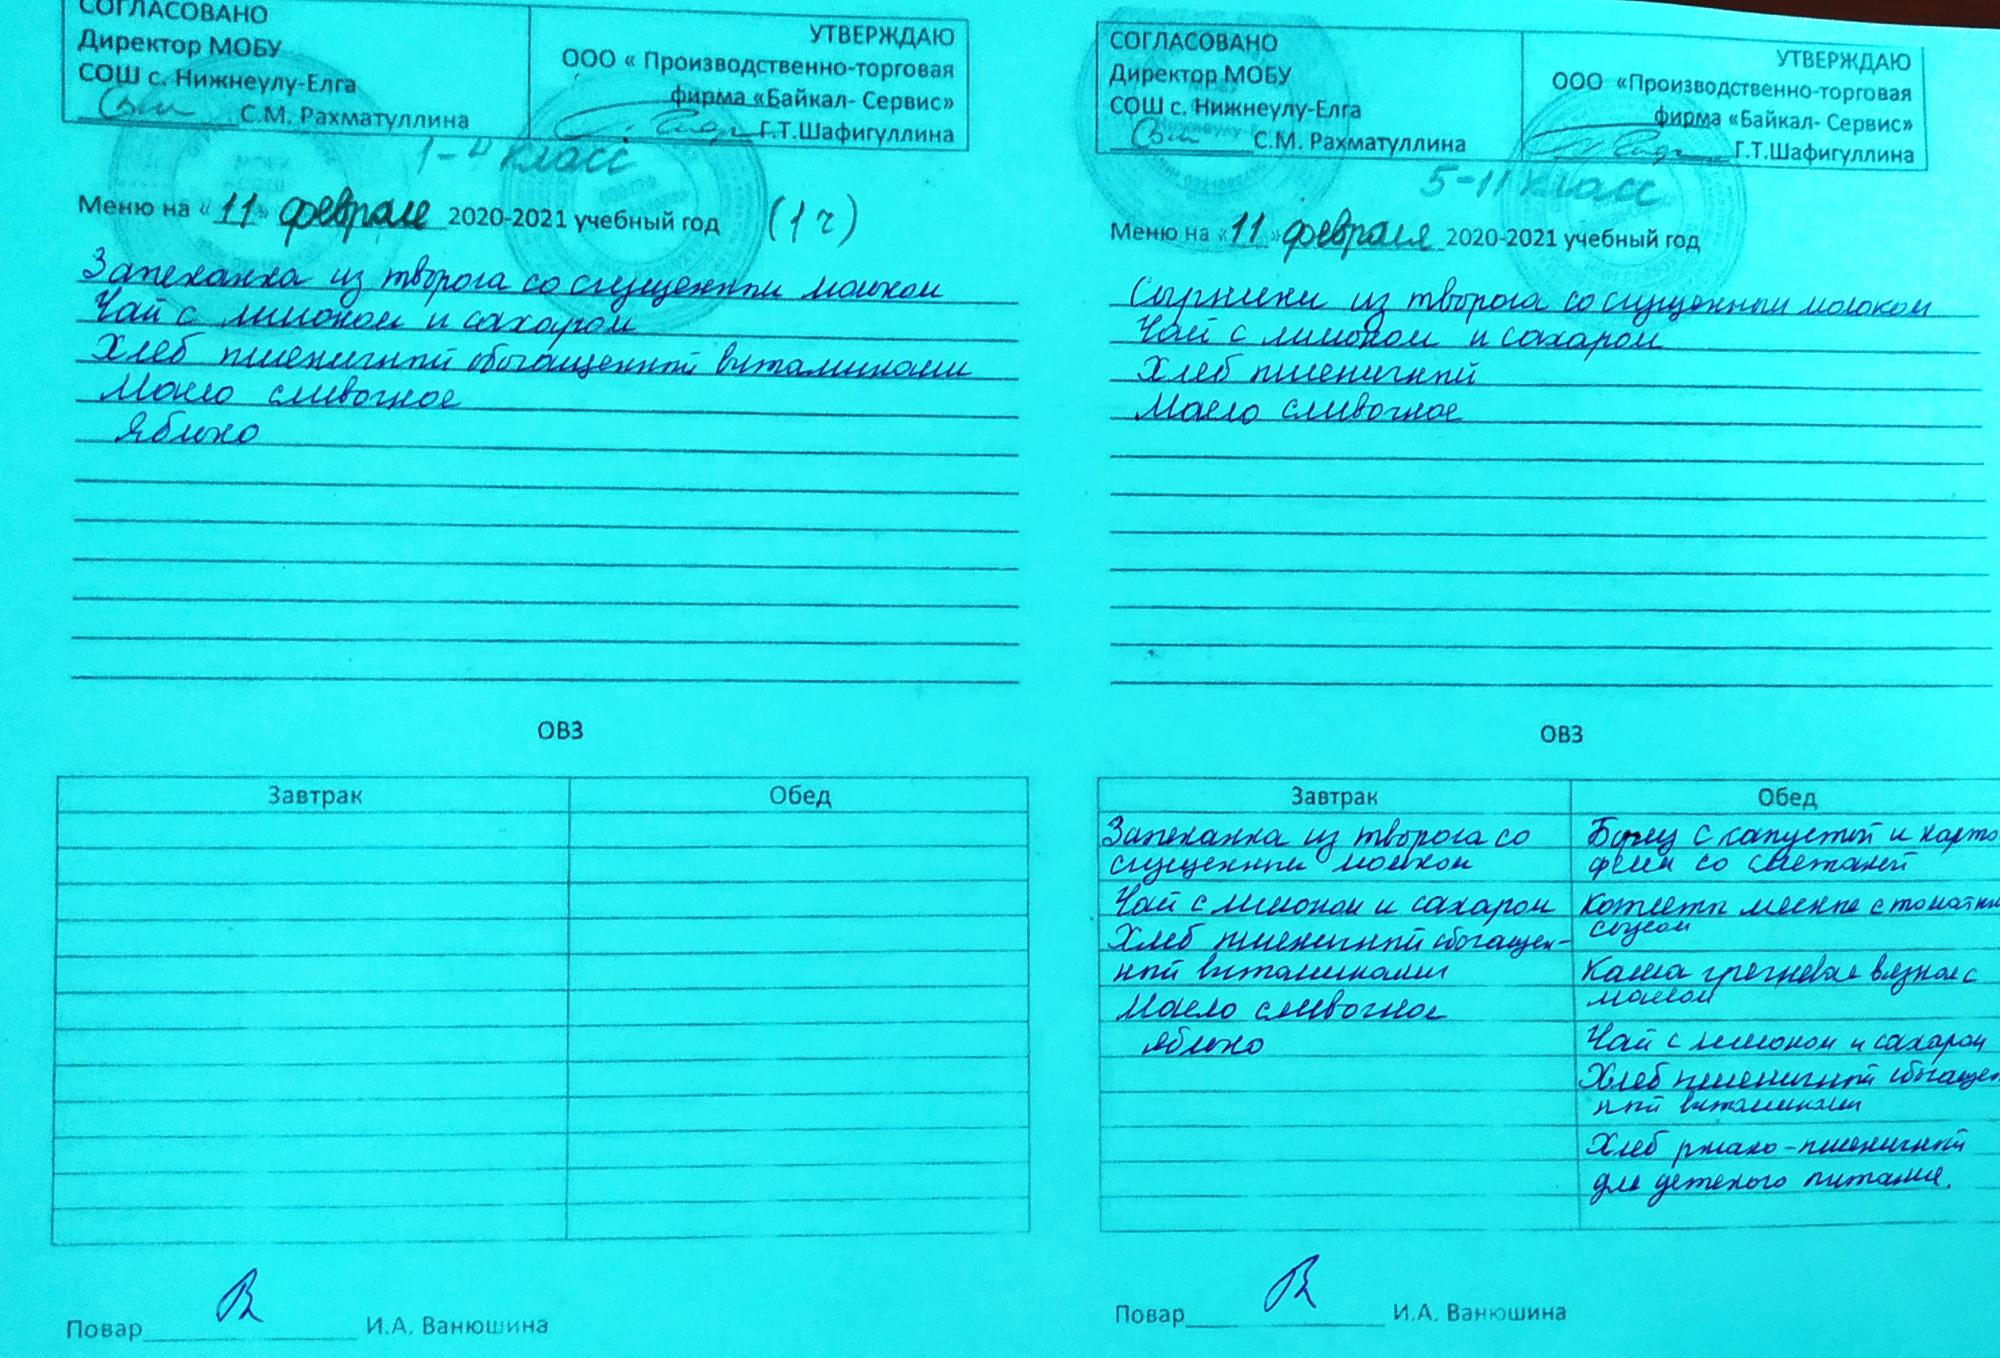 СОГЛАСОВАНО
Директор МОБУ
СОШ с. Нижнеулу-Елга
С.М. Рахматуллина
УТВЕРЖДАЮ
ООО « Производственно-торговая
фирма «Байкал- Сервис»
Г.Т.Шафигуллина
1-4 класс
Меню на «11» февраля 2020-2021 учебный год (1ч)
Запеканка из творога со сгущенным молоком
Чай с лимоном и сахаром
Хлеб пшеничный обогащенный витаминами
Масло сливочное
Яблоко
ОВЗ
Завтрак Обед
Повар И.А. Ванюшина
СОГЛАСОВАНО
Директор МОБУ
СОШ с. Нижнеулу-Елга
С.М. Рахматуллина
УТВЕРЖДАЮ
ООО «Производственно-торговая
фирма «Байкал- Сервис»
Г.Т.Шафигуллина
5-11 класс
Меню на «11» февраля 2020-2021 учебный год
Сырники из творога со сгущенным молоком
Чай с лимоном и сахаром
Хлеб пшеничный
Масло сливочное
ОВЗ
Завтрак
Запеканка из творога со
сгущенным молоком
Чай с лимоном и сахаром
Хлеб пшеничный обогащен-
ный витаминами
Масло сливочное
Яблоко
Обед
Борщ с капустой и карто
фелем со сметаной
Котлеты мясные с томатны
соусом
Каша гречневая вязкая с
маслом
Чай с лимоном и сахаром
Хлеб пшеничный обогащен
ный витаминами
Хлеб ржано-пшеничный
для детского питания.
Повар И.А. Ванюшина